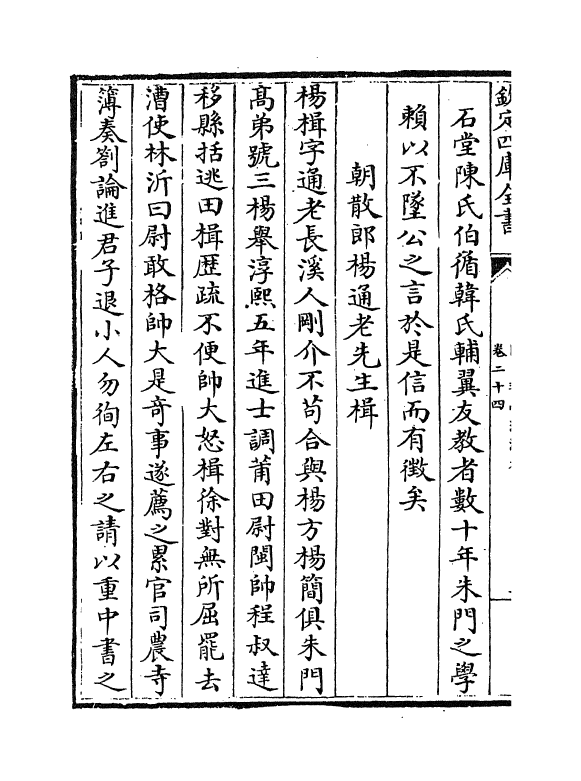 欽定四庫全書
卷二十四
石堂陳氏伯循韓氏輔翼友教者數十年朱門之學
賴以不墜公之言於是信而有徵矣
朝散郎楊通老先生楫
楊楫字通老長溪人剛介不苟合與楊方楊簡俱朱門
高弟號三楊舉淳熙五年進士調莆田尉閩帥程叔達
移縣括逃田楫歴疏不便帥大怒楫徐對無所屈罷去
漕使林沂曰尉敢格帥大是竒事遂薦之累官司農寺
簿奏劄論進君子退小人勿徇左右之請以重中書之